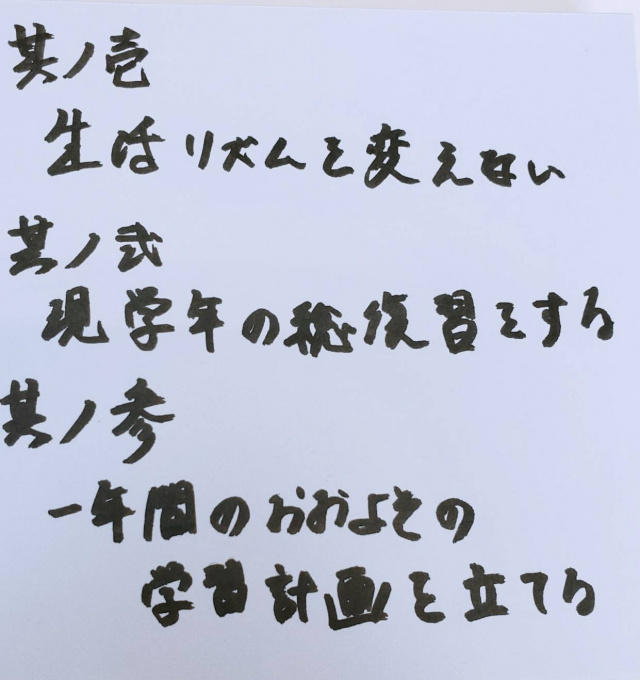 其ノ壱
生活リズムを変えない
其ノ弐
現学年の総復習をする
其ノ参
一年間のおおよその
学習計画を立てる